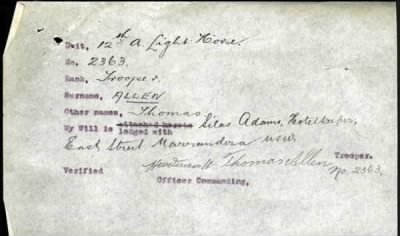 Unit, 12th A. Light Horse.
No. 2363.
Rank, Trooper.
Surname, ALLEN
Other names, Thomas.
attached hereto
My Will is lodged with Silas Adams, Hotelkeeper,
East Street Narrandera NSW
Thomas Allen Trooper.
No. 2363.
Verified
Officer Commanding,